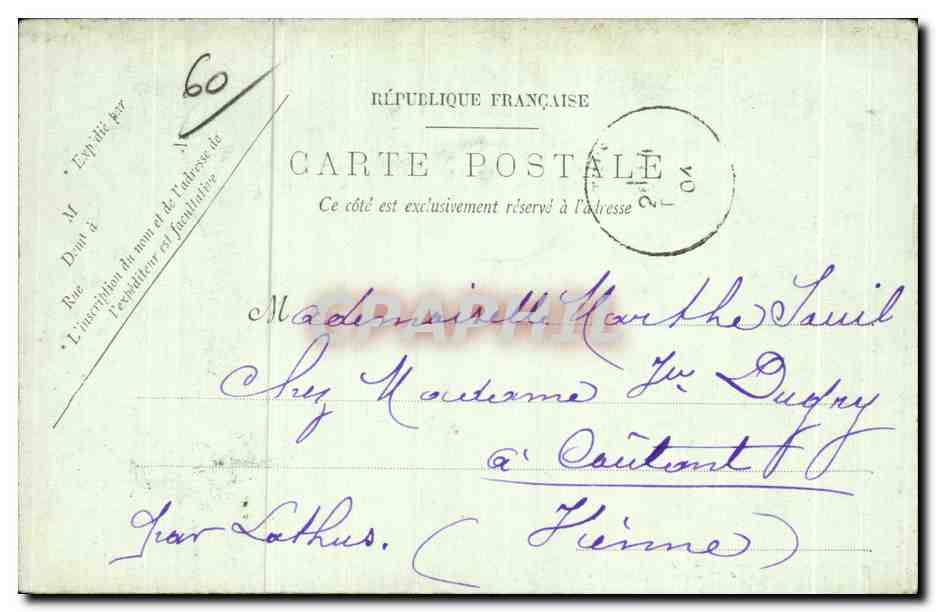 60
RÉPUBLIQUE FRANÇAISE
CARTE POSTALE
Ce côté est exclusivement réservé à l'adresse
04
* Expédié par
M
Demt à
Rue N
* L'inscription du nom et de l'adresse de
l'expéditeur est facultative
CPAPHIL
Mademoiselle Marthe Souil
Chez Madame Vve Dugry
à Coûtant
par Lathus. (Vienne)